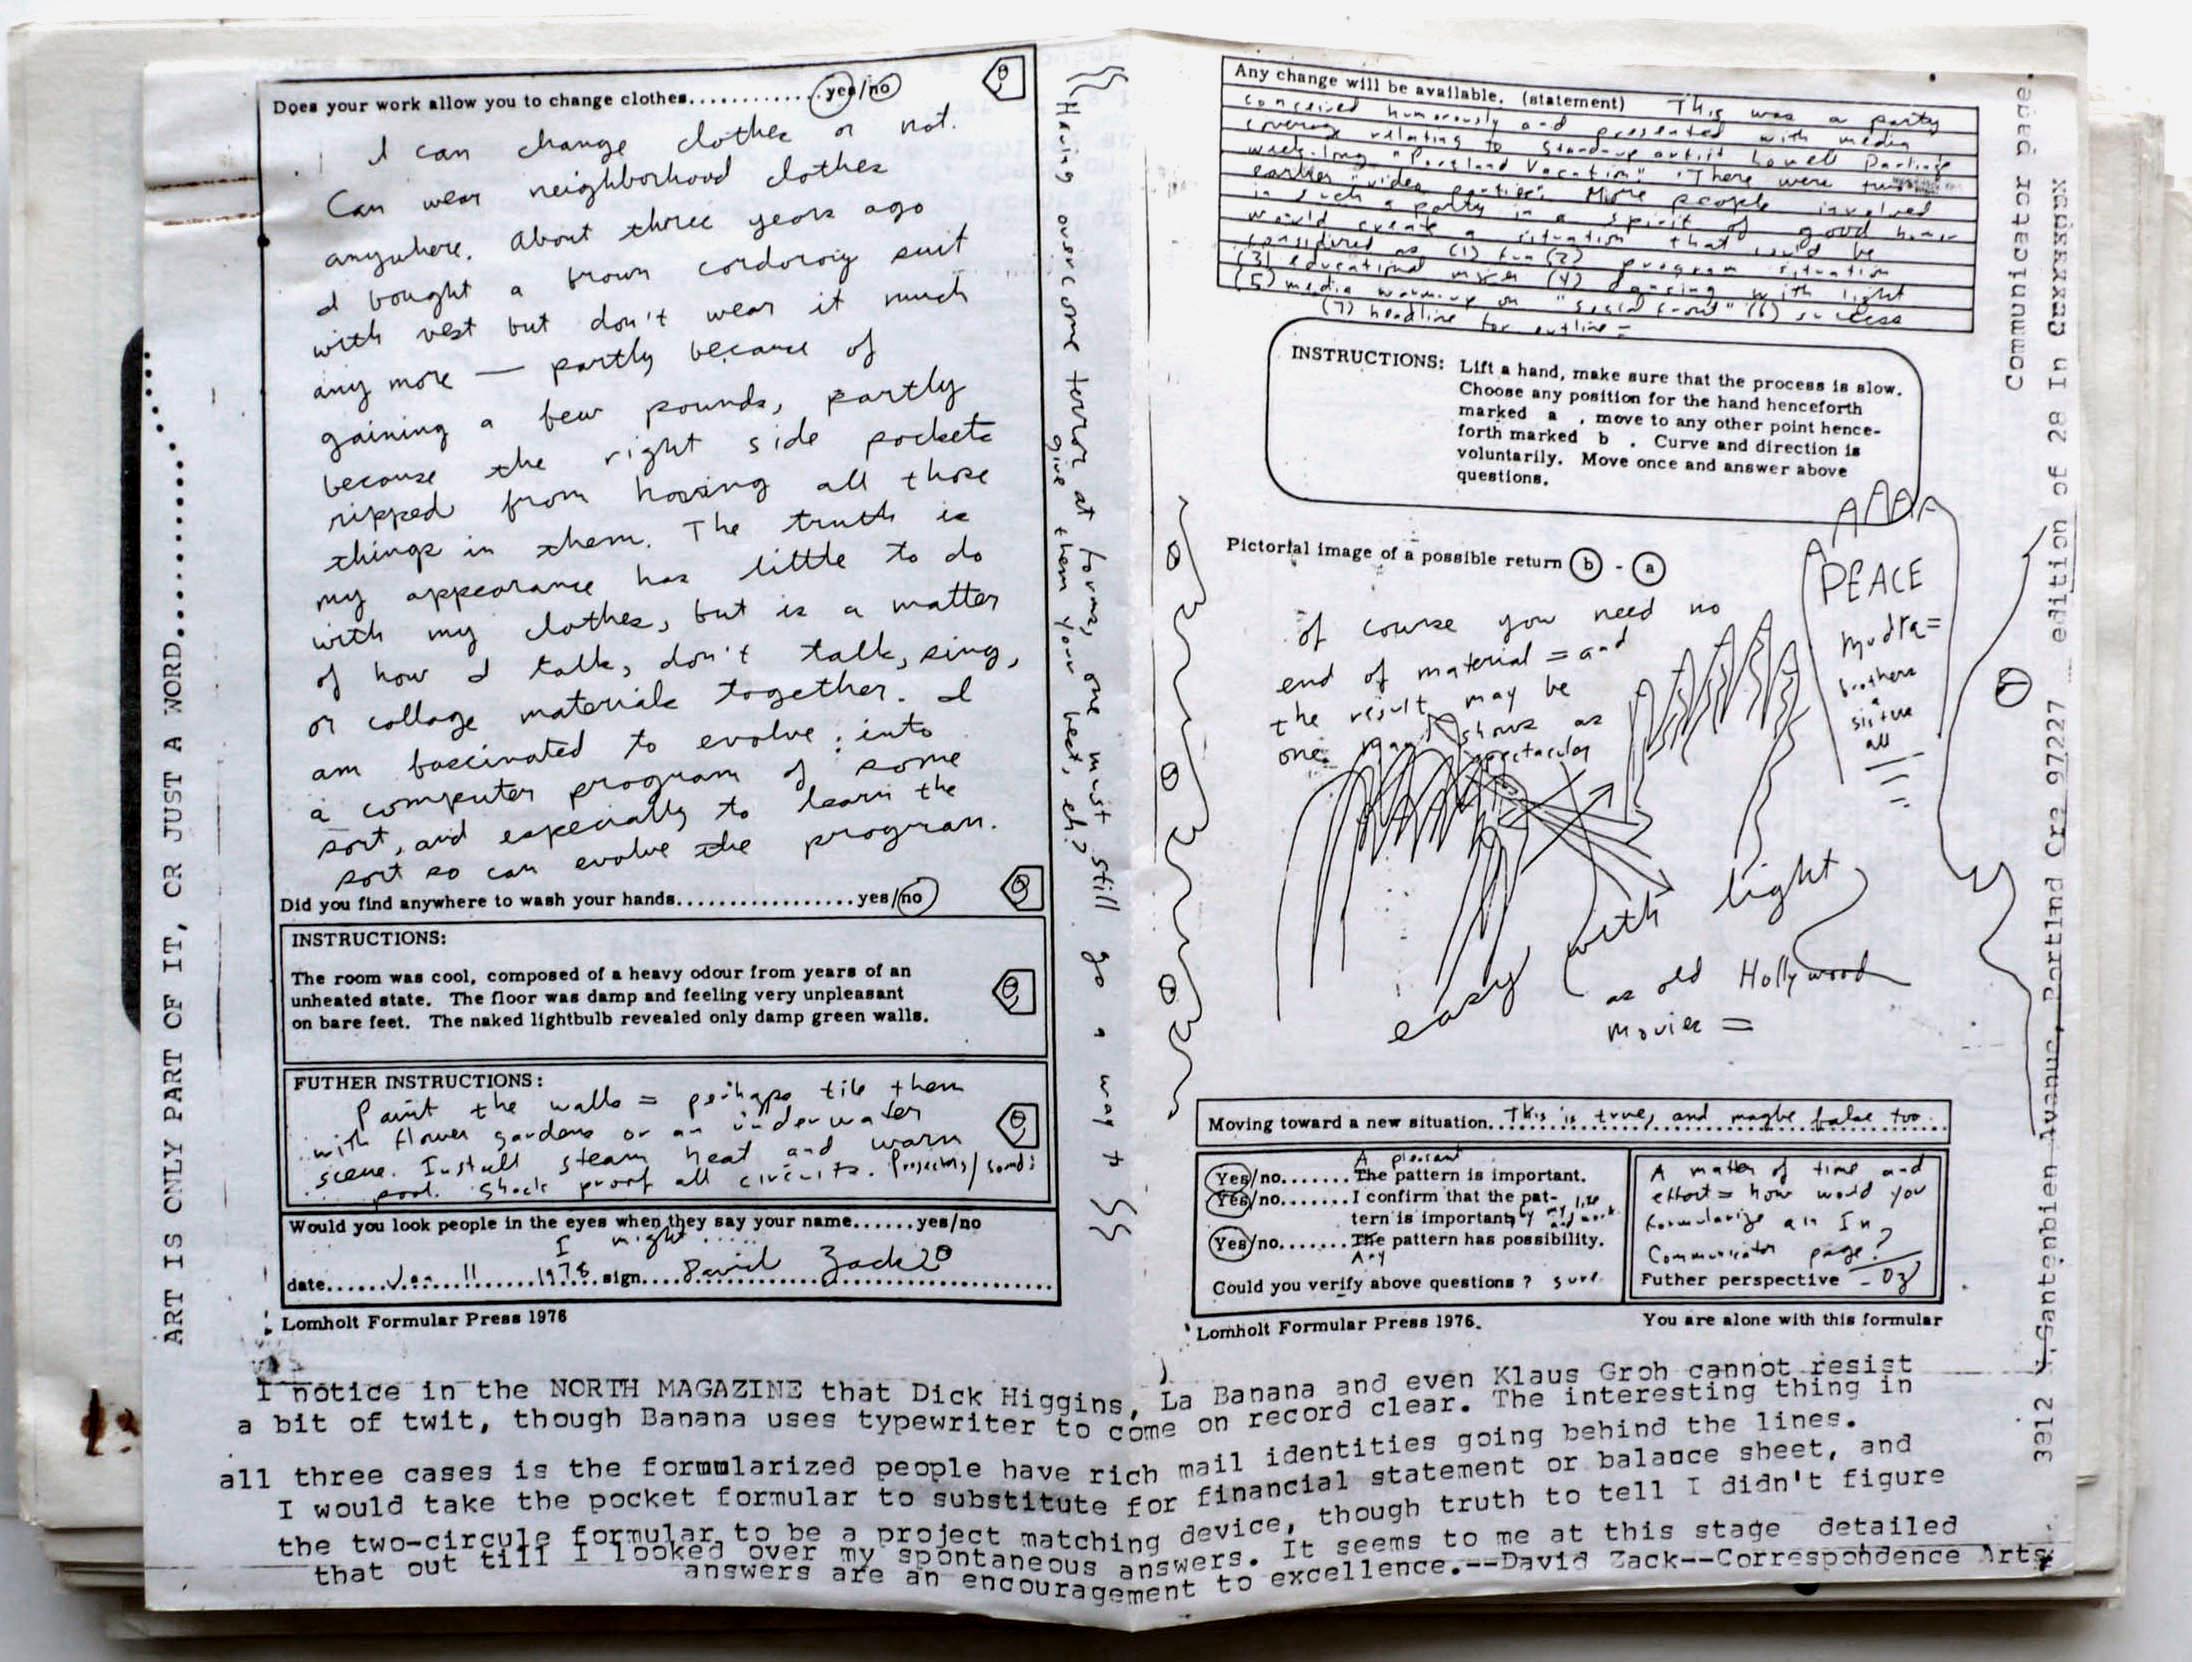 Does your work allow you to change clothes.............yes/no
I can change clothes or not.
Can wear neighborhood clothes
anywhere. About three years ago
I bought a brown corduroiy suit
with vest but don't wear it much
any more — partly because of
gaining a few pounds, partly
because the right side pockets
ripped from having all those
things in them. The truth is
my appearance has little to do
with my clothes, but is a matter
of how I talk, don't talk, sing,
or collage materials together. I
am fascinated to evolve: into
a computer program of some
sort, and especially to learn the
sort so can evolve the program.
Did you find anywhere to wash your hands.................yes/no
INSTRUCTIONS:
The room was cool, composed of a heavy odour from years of an
unheated state. The floor was damp and feeling very unpleasant
on bare feet. The naked lightbulb revealed only damp green walls.
FUTHER INSTRUCTIONS:
Paint the walls = perhaps tile them
with flower gardens or an underwater
scene. Install steam heat and warm
pool. Shock proof all circuits. Projectors/
Would you look people in the eyes when they say your name......yes/no
I might .....
date......Jan 11......1978.sign....David Zack
Lomholt Formular Press 1976
ART IS ONLY PART OF IT, OR JUST A WORD........
Having overcome terror at forms, one must still go a way &
give them your best, eh?
Any change will be available. (statement) This was a party
conceived humorously and presented with media
coverage relating to stand-up artist Lowell Darling's
week-long "Portland Vacation". There were two
earlier "video parties". More people involved
in such a party in a spirit of good humor
would create a situation that could be
considered as (1) fun (2) program situation
(3) educational mixer (4) dancing with light
(5) media warm-up on "social" (6) success
(7) headline for outline =
INSTRUCTIONS: Lift a hand, make sure that the process is slow.
Choose any position for the hand henceforth
marked a , move to any other point hence-
forth marked b . Curve and direction is
voluntarily. Move once and answer above
questions.
Pictorial image of a possible return b - a
of course you need no
end of material = and
the result may be
one shows as
spectacular
PEACE
mudra =
brothers
sisters
all
easy with light
as old Hollywood
movies =
Moving toward a new situation..This is true, and maybe false too.
A pleasant
Yes/no.......The pattern is important.
Yes/no.......I confirm that the pat-
tern is important, by my life and work.
Yes/no.......The pattern has possibility.
Any
Could you verify above questions ? sure
A matter of time and
effort = how would you
formularize an In
Communicator page?
Futher perspective
Lomholt Formular Press 1976.
You are alone with this formular
Communicator page.
3912 Gantenbien Avanue, Portlnd Cre 97227 edition of 28 In
I notice in the NORTH MAGAZINE that Dick Higgins, La Banana and even Klaus Groh cannot resist
a bit of twit, though Banana uses typewriter to come on record clear. The interesting thing in
all three cases is the formularized people have rich mail identities going behind the lines.
I would take the pocket formular to substitute for financial statement or balance sheet, and
the two-circule formular to be a project matching device, though truth to tell I didn't figure
that out till I looked over my spontaneous answers. It seems to me at this stage detailed
answers are an encouragement to excellence.--David Zack--Correspohdence Arts